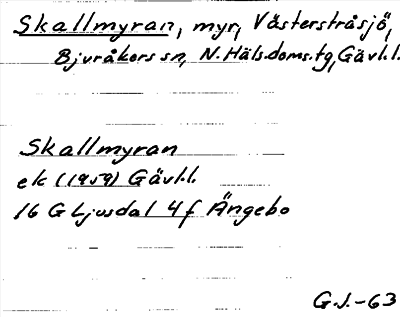 Skallmyran, myr, Västerstråsjö,
Bjuråkers sn, N. Häls. doms. tg, Gävl.l.
Skallmyran
ek (1959) Gävl.l.
16 G Ljusdal 4 f Ängebo
G.J.-63